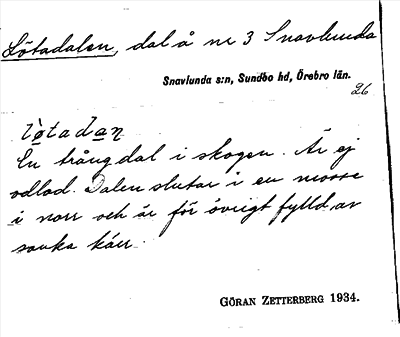 Lötadalen, dal å nr 3 Snavlunda
Snavlunda s:n, Sundbo hd, Örebro län.
26
lø̀tadaṇ
En trång dal i skogen. Är ej
odlad. Dalen slutar i en mosse
i norr och är för övrigt fylld av
sanka kärr.
GÖRAN ZETTERBERG 1934.